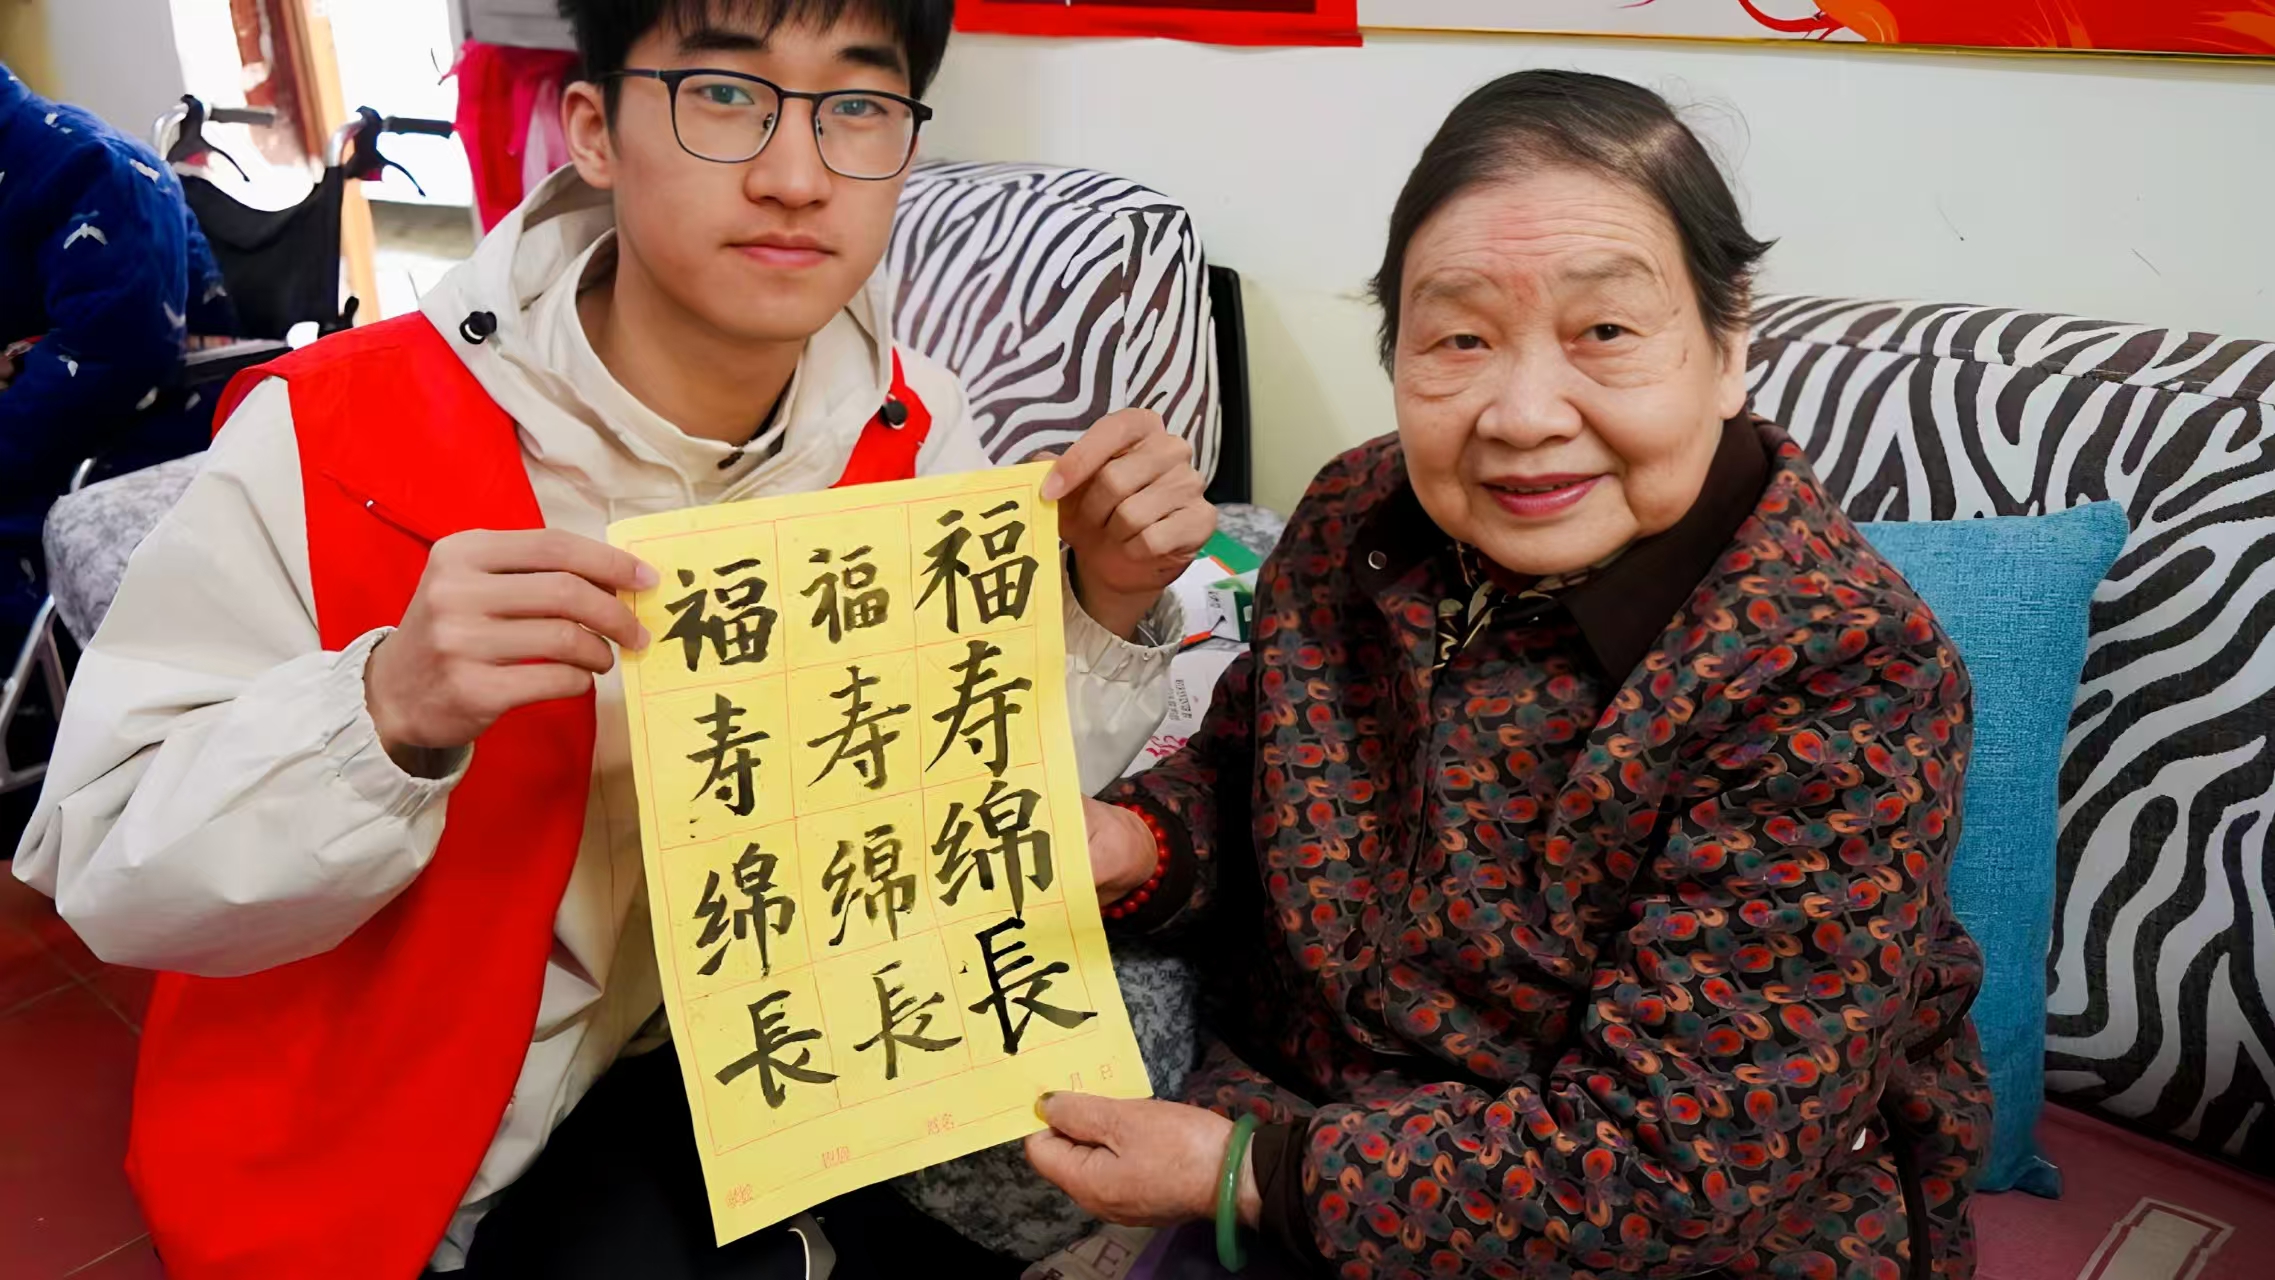 福寿绵長
福寿绵長
福寿绵長
姓名 月 日